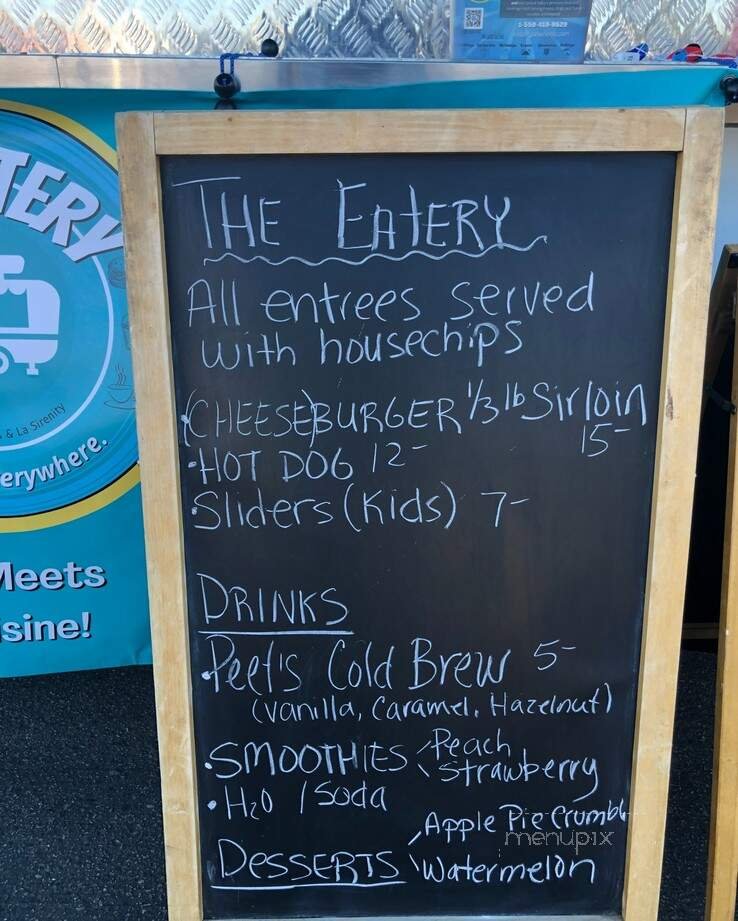 1-559-419-9829
TERY
& La Sirenity
erywhere.
Meets
isine!
THE EATERY
All entrees served
with housechips
•(CHEESE)BURGER 1/3 lb Sirloin
15-
•HOT DOG 12-
•Sliders (Kids) 7-
DRINKS
•Peet's Cold Brew 5-
(Vanilla, Caramel, Hazelnut)
•SMOOTHIES Peach
Strawberry
•H2O / Soda
Apple Pie Crumbl
menupix
DESSERTS Watermelon